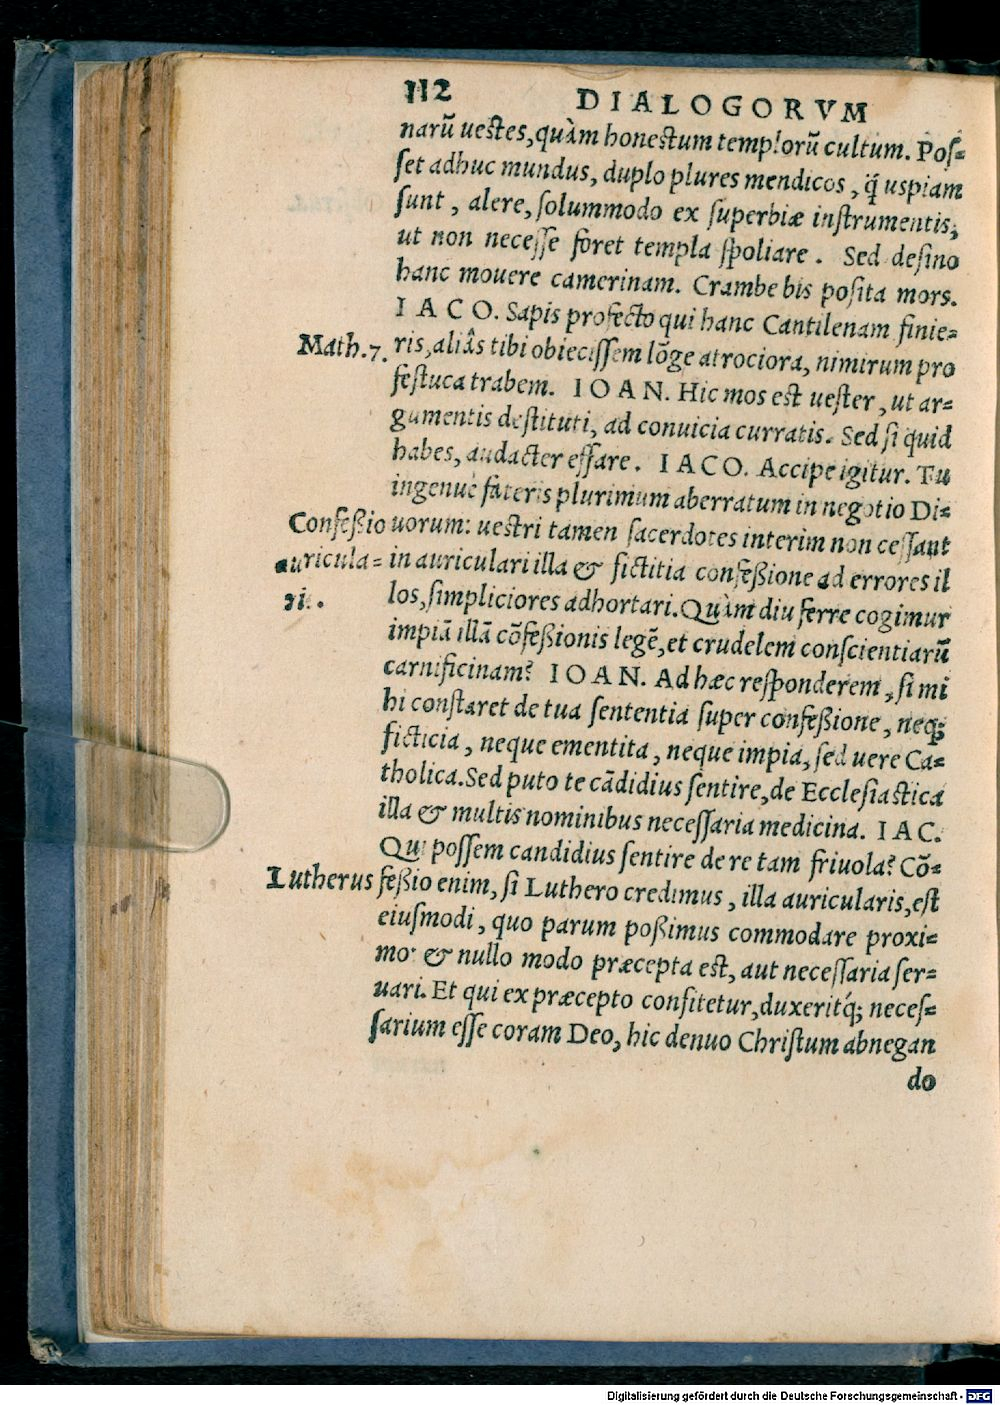 112 DIALOGORVM
narũ uestes, quàm honestum templorũ cultum. Pos=
set adhuc mundus, duplo plures mendicos, q̃ uspiam
sunt, alere, solummodo ex superbiæ instrumentis,
ut non necesse foret templa spoliare. Sed desino
hanc mouere camerinam. Crambe bis posita mors.
IACO. Sapis profecto qui hanc Cantilenam finie=
Math.7. ris, aliâs tibi obiecissem lõge atrociora, nimirum pro
festuca trabem. IOAN. Hic mos est uester, ut ar=
gumentis destituti, ad conuicia curratis. Sed si quid
habes, audacter effare. IACO. Accipe igitur. Tu
ingenue fateris plurimum aberratum in negotio Di=
Confeßio uorum: uestri tamen sacerdotes interim non cessant
auricula= in auriculari illa & fictitia confeßione ad errores il
ris. los, simpliciores adhortari. Quàm diu ferre cogimur
impiã illã cõfeßionis legẽ, et crudelem conscientiarũ
carnificinam? IOAN. Ad hæc responderem, si mi
hi constaret de tua sententia super confeßione, neq;
ficticia, neque ementita, neque impia, sed uere Ca=
tholica. Sed puto te cãdidius sentire, de Ecclesiastica
illa & multis nominibus necessaria medicina. IAC.
Qui possem candidius sentire de re tam friuola? Cõ=
Lutherus feßio enim, si Luthero credimus, illa auricularis, est
eiusmodi, quo parum poßimus commodare proxi=
mo & nullo modo præcepta est, aut necessaria ser=
uari. Et qui ex præcepto confitetur, duxeritq́; neces=
sarium esse coram Deo, hic denuo Christum abnegan
do
Digitalisierung gefördert durch die Deutsche Forschungsgemeinschaft - DFG